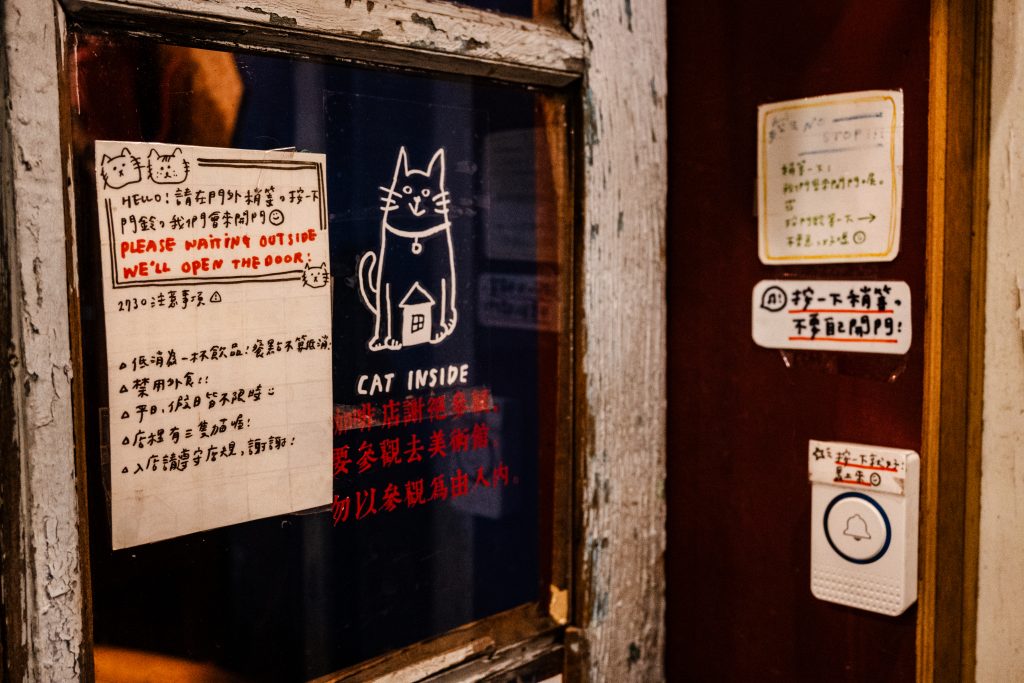 HELLO! 請在門外稍等。按一下
門鈴。我們會來開門
PLEASE WAITING OUTSIDE
WE'LL OPEN THE DOOR!
2730注意事項
低消為一杯飲品!餐點不算低消!
禁用外食!!
平日,假日皆不限時
店裡有三隻貓喔!
入店請遵守店規,謝謝!
CAT INSIDE
咖啡店謝絕參觀。
要參觀去美術館。
勿以參觀為由入內。
NO
STOP!!!
稍等一下!
我們會來開門喔。
按門鈴等一下→
按一下稍等。
不要自己開門!
按一下就好!
馬上來